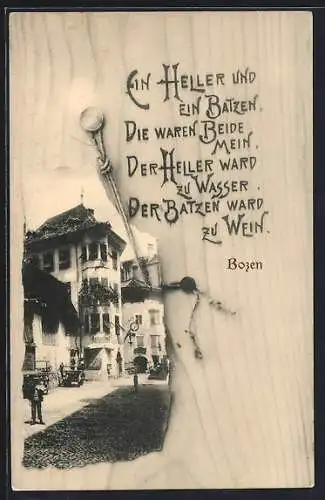 Ein Heller und
ein Batzen.
Die waren Beide
Mein.
Der Heller ward
zu Wasser.
Der Batzen ward
zu Wein.
Bozen